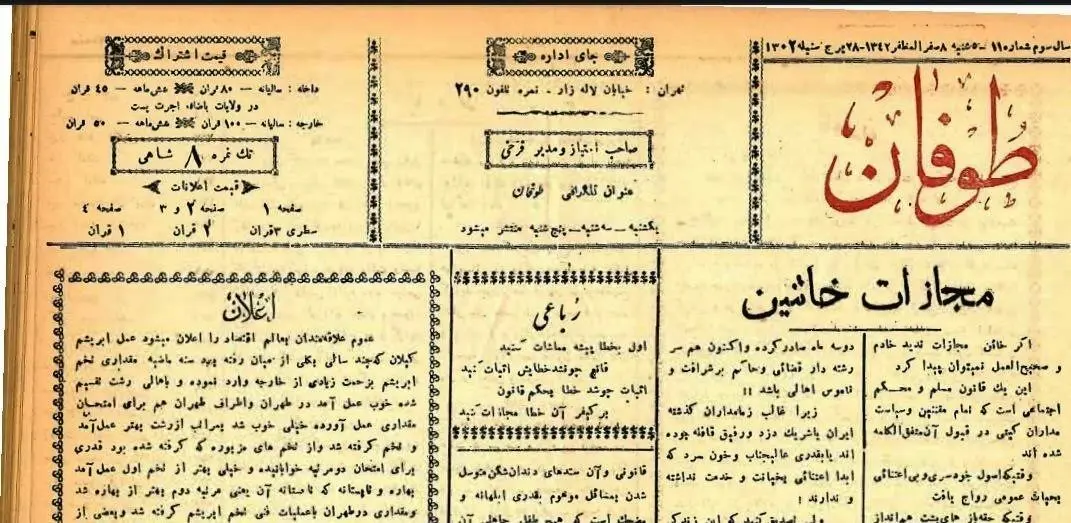 سال سوم شماره ۱۱ ـ ۵شنبه ۸ صفر المظفر ۱۳۴۲ـ۲۸ برج سنبله ۱۳۰۲
طوفان
جای اداره
تهران : خیابان لاله زار ـ نمره تلفون ۲۹۰
صاحب امتیاز و مدیر فرخی
عنوان تلگرافی طوفان
یکشنبه ـ سه‌شنبه ـ پنج‌شنبه منتشر میشود
قیمت اشتراك
داخله : سالیانه — ۸۰ قران شش‌ماهه — ۴۵ قران
در ولایات باضافه اجرت پست
خارجه : سالیانه — ۱۰۰ قران شش‌ماهه — ۵۰ قران
تك نمره ۸ شاهی
قیمت اعلانات
صفحه ۱ صفحه ۲ و ۳ صفحه ٤
سطری ۳قران ۲ قران ۱ قران
مجازات خائنین
اگر خائن مجازات ندید خادم
و صحیح‌العمل نمیتوان پیدا کرد
این یك قانون مسلم و محکم
اجتماعی است که تمام مقننین و سیاست
مداران گیتی در قبول آن متفق‌الکلمه
شده اند
وقتیکه اصول خودسری و بی‌اعتنائی
بحیات عمومی رواج یافت
دوسه ماه صادر کرده و اکنون هم سر
رشته دار قضائی و حاکم بر شرافت و
ناموس اهالی باشد !!
زیرا غالب زمامداران گذشته
ایران یا شریك دزد و رفیق قافله بوده
اند یا بقدری عالیجناب و خون سرد که
ابدا اعتنائی بخیانت و خدمت نداشته
و ندارند !
رُباعی
اول بخطا پیشه مماشات کنید
قانع چو نشد خطایش اثبات کنید
اثبات چو شد خطا بحکم قانون
بر کیفر آن خطا مجازات کنید
قانونی و آن سندهای دندان‌شکن متوسل
شدن بمسائل موهوم بقدری ابلهانه و
مضحك است که هیچ طفل جاهلی آن
اعلان
عموم علاقمندان بعالم اقتصاد را اعلان میشود عمل ابریشم
گیلان که چند سالی بکلی از میان رفته بود سنه ماضیه مقداری تخم
ابریشم بزحمت زیادی از خارجه وارد نموده و باهالی رشت تقسیم
شده خوب عمل آمد در طهران و اطراف طهران هم برای امتحان
مقداری عمل آورده خیلی خوب شد بمراتب از رشت بهتر عمل آمد
و تخم گرفته شد و از تخم های مزبوره که گرفته شده بود قدری
برای امتحان دو مرتبه خوابانیده و خیلی بهتر از تخم اول عمل آمد
بهاره و تابستانه که تابستانه آن یعنی مرتبه دوم بهتر از بهاره شد
و مقداری در طهران با عملیات فنی تخم ابریشم گرفته شد و بعضی از